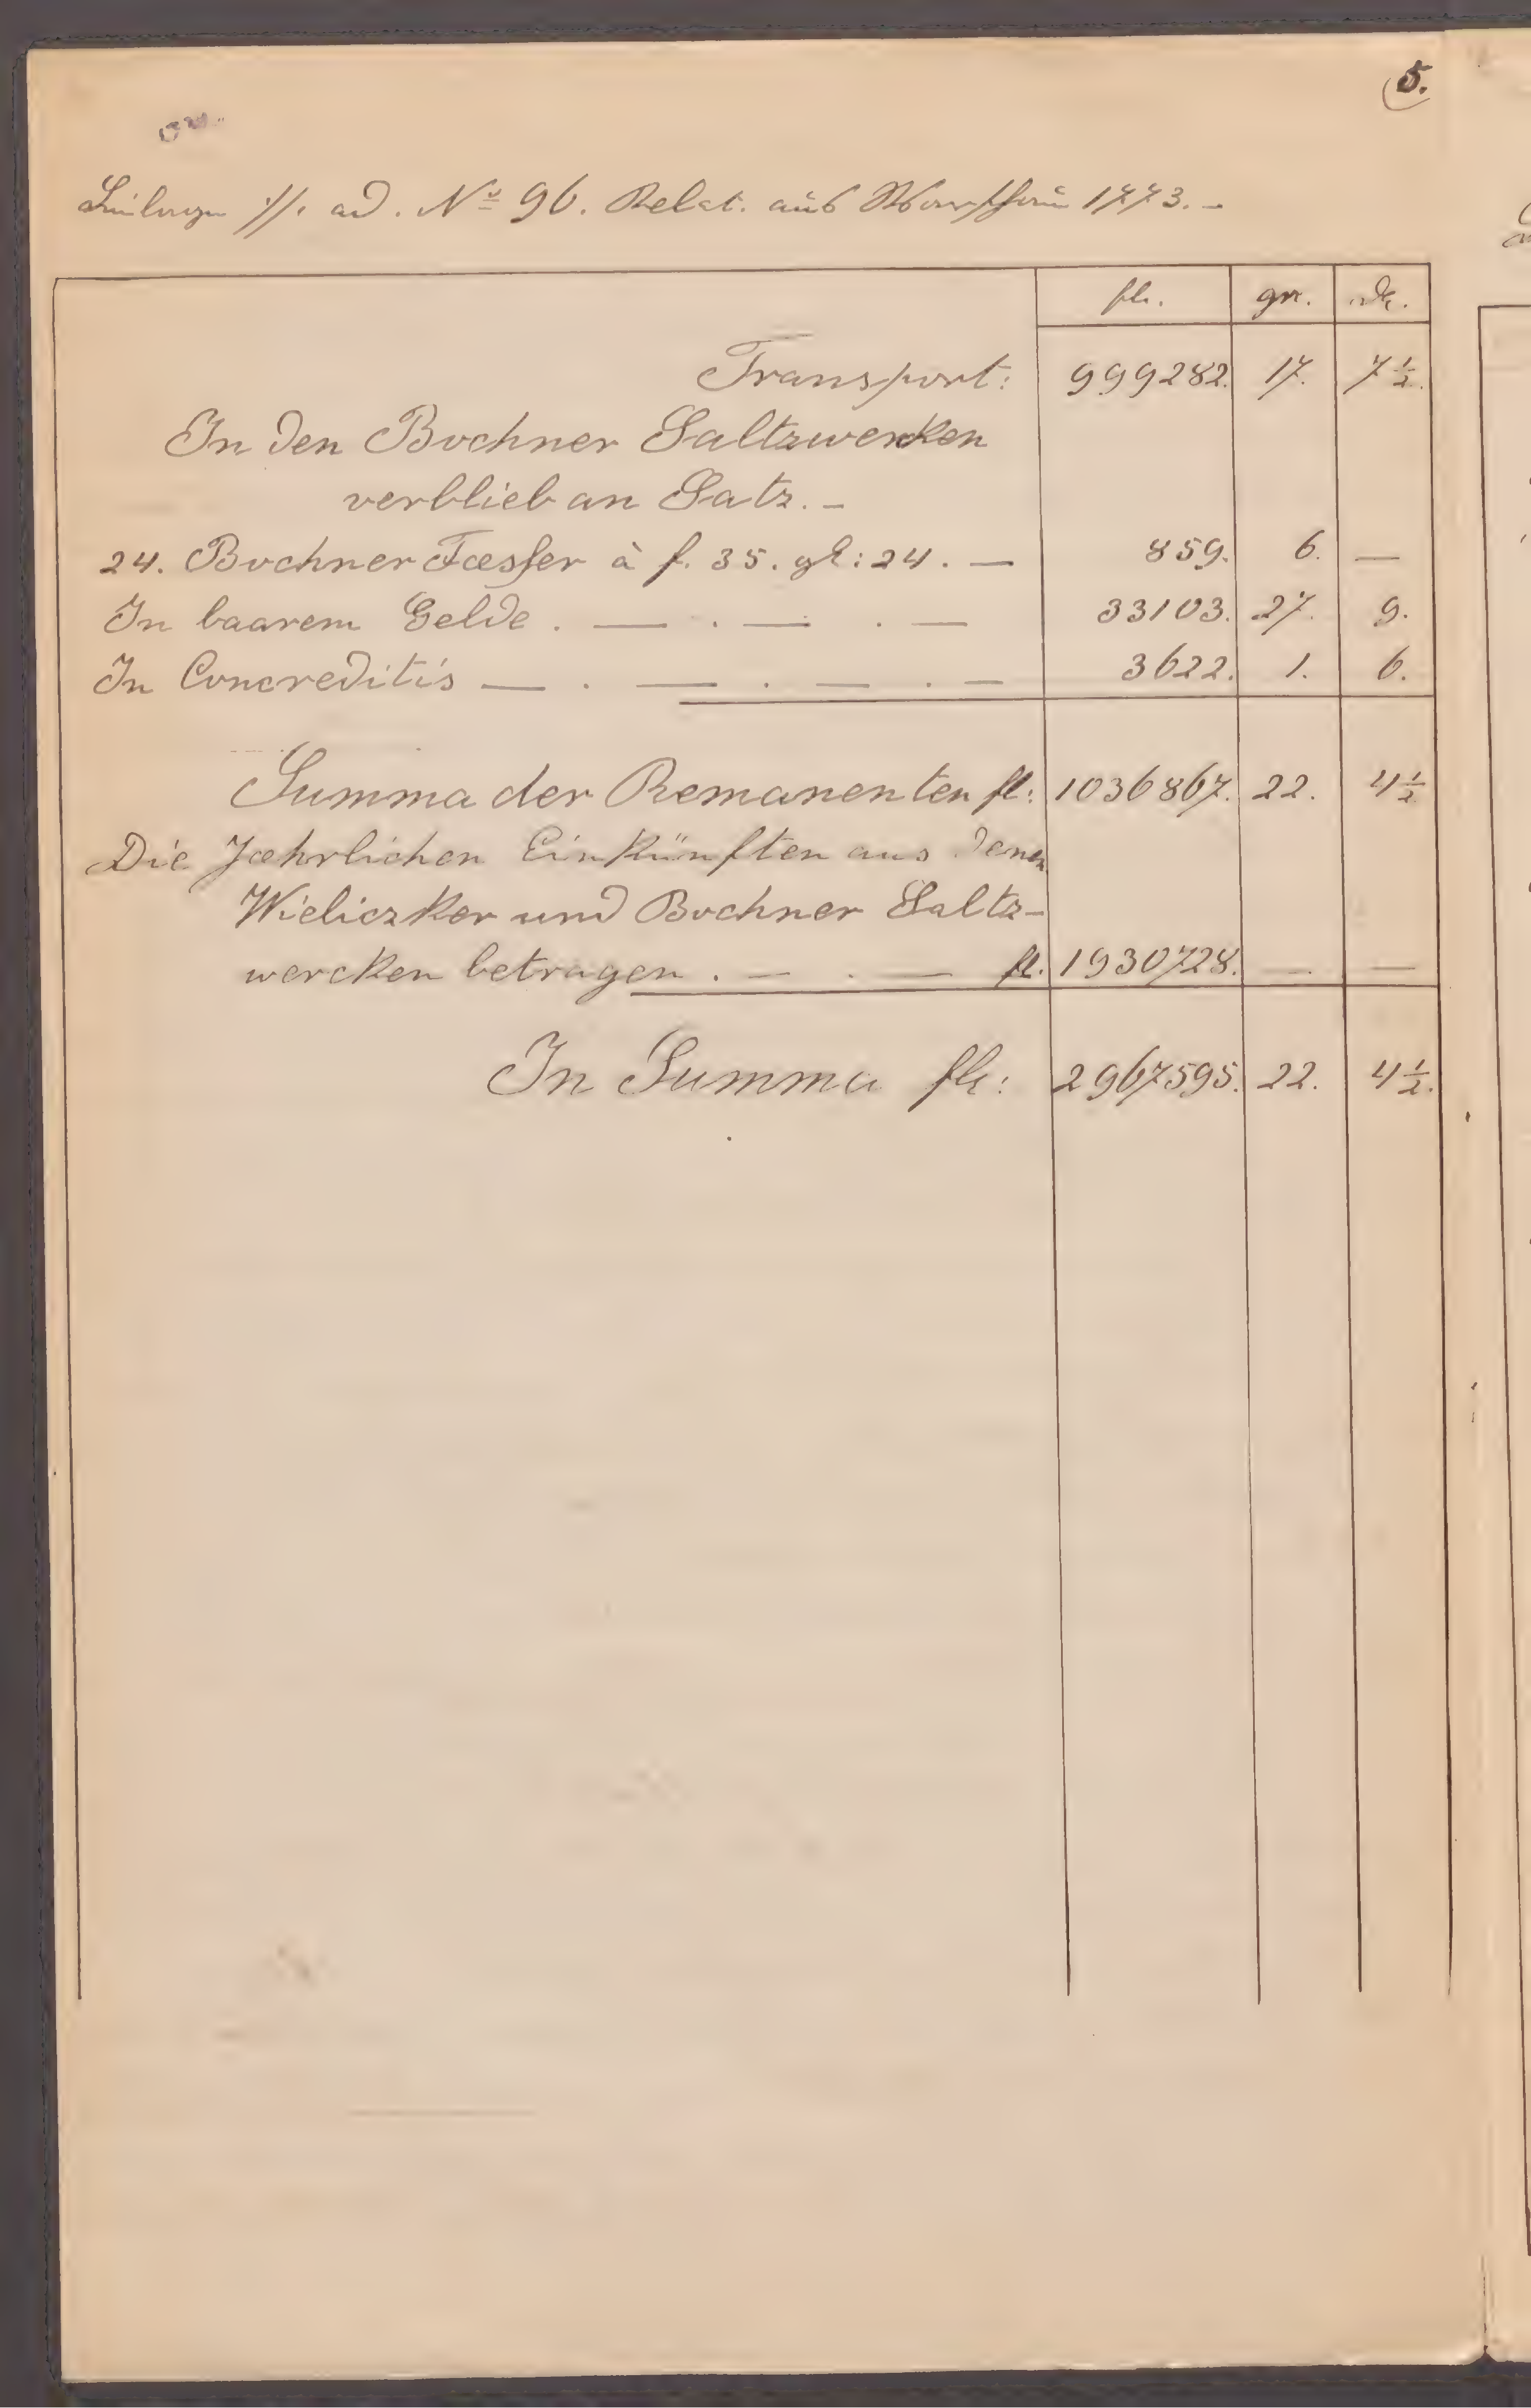 5.
Beilage ://: ad. No 96. Relat. aus Warschau 1773. –
fl. gr. d.
Transport: 999282. 17. 7 1/2.
In den Bochner Saltzwercken
verblieb an Satz. –
24. Bochner Fæsser à f. 35. gl: 24. — 859. 6. —
In baarem Gelde . — . — . — 33103. 27. 9.
In Concreditis — . — . — . — 3622. 1. 6.
Summa der Remanenten fl: 1036867. 22. 4 1/2
Die Jæhrlichen Einkünften aus denen
Wieliczker und Bochner Saltz-
wercken betragen . — . — fl. 1930728. — —
In Summa fl: 2967595. 22. 4 1/2.